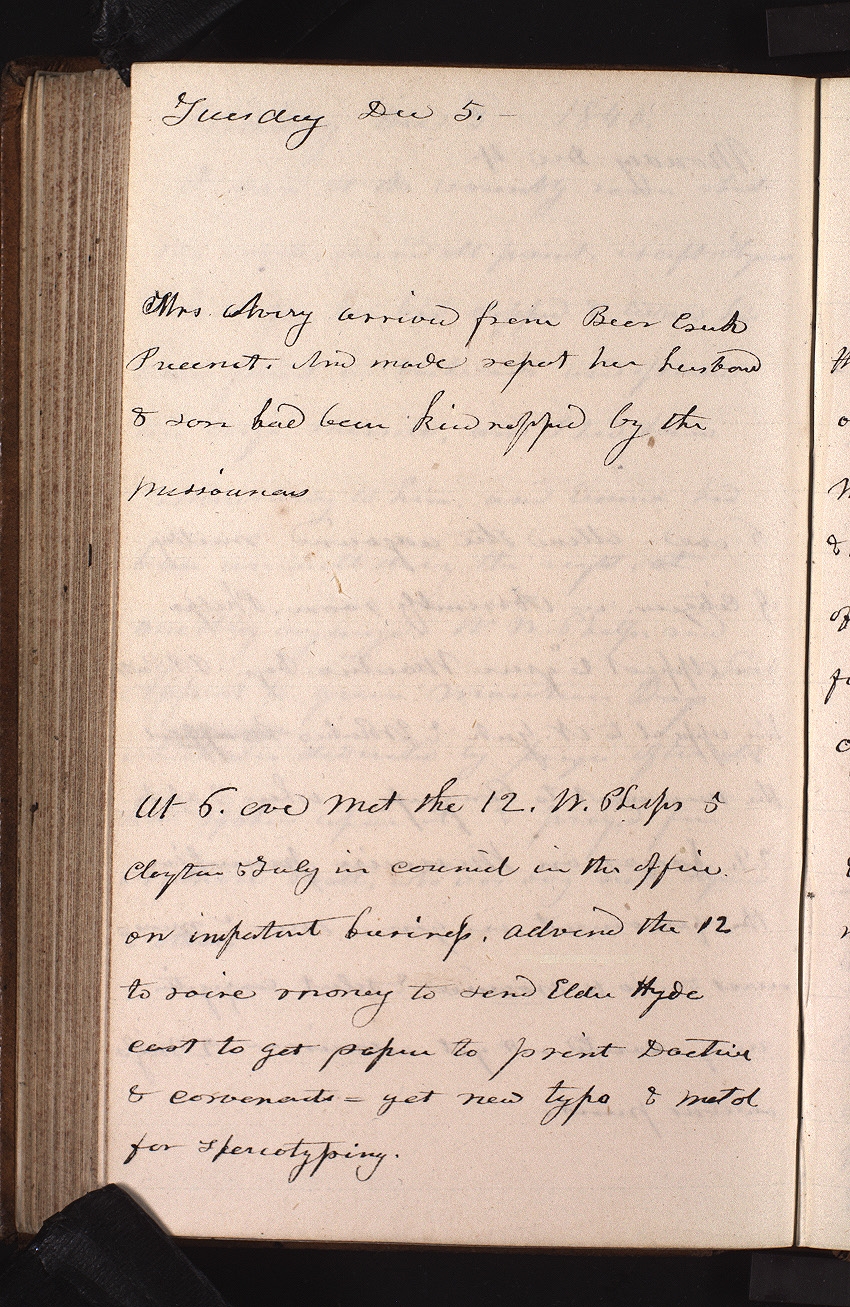 Tuesday Dec 5. –
Mrs. Avery arrived from Bear Creek
Precinct. And made report her husband
& son had been kidnapped by the
missourians
At 6. eve met the 12. W. Phelps &
Clayton & Turly in council in the office.
on important business. advised the 12
to raise money to send Elder Hyde
east to get paper to print Doctrine
& covenants = get new type & metal
for stereotyping.